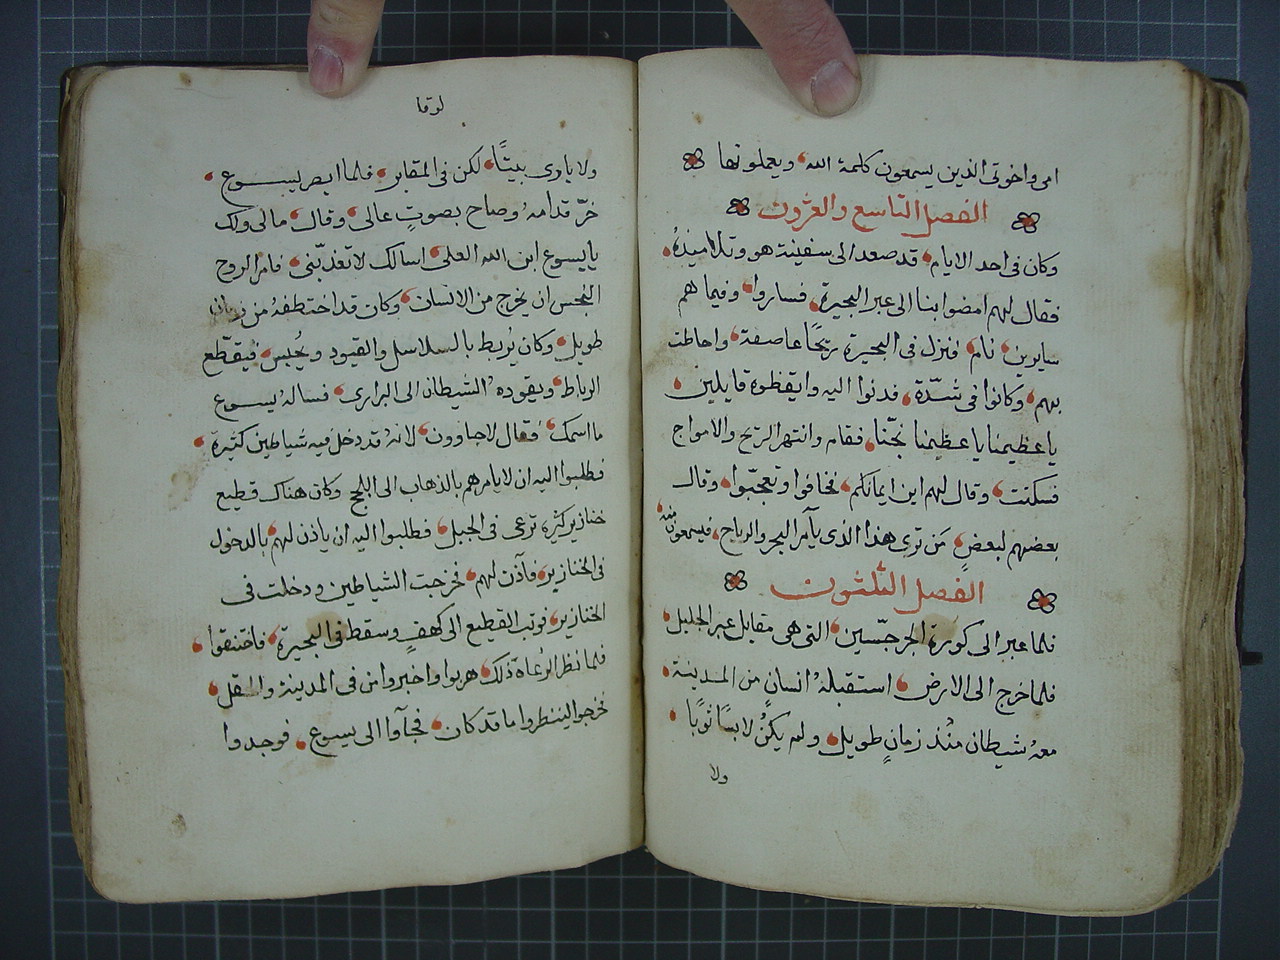 امى واخوتى الذين يسمعون كلمة الله ويعملونها
الفصل التاسع والعشرون
وكان فى احد الايام قد صعد الى سفينة هو وتلاميذه
فقال لهم امضوا بنا الى عبر البحيرة فساروا وفيما هم
سايرين نام فنزل فى البحيرة ريحًا عاصفة واحاطت
بهم وكانوا فى شدّة فدنوا اليه وايقظوه قايلين
يا عظيمنا يا عظيمنا نجّنا فقام وانتهر الريح والامواج
فسكنت وقال لهم اين ايمانكم فخافوا وتعجّبوا وقال
بعضهم لبعضٍ مَن ترى هذا الذى يآمر البحر والرياح فيسمعون منه
الفصل الثلثون
فلما عبر الى كورة الجرجسّين التى هى مقابل عبر الجليل
فلما خرج الى الارض استقبلهُ انسانٍ من المدينة
معهُ شيطان منُذ زمانٍ طويل ولم يكنُ لابسًا ثوبًا
ولا
لوقا
ولا ياوى بيتًا لكن فى المقابر فلما ابصر يسوع
خرّ قدامهُ وصاح بصوتٍ عالى وقال ما لى ولك
يا يسوع ابن الله العلى اسالك لا تعذبّنى فامر الروح
النجس ان يخرج من الانسان وكان قد اختطفهُ من زمان
طويل وكان يُربط بالسلاسل والقيود ويُحبس فيقطّع
الرباط ويقودهُ الشيطان الى البرارى فسالهُ يسوع
ما اسمك فقال لاجاوون لانهُ قد دخل فيه شياطين كثيرة
فطلبوا اليه ان لا يامرهم بالذهاب الى اللجج وكان هناك قطيع
خنازير كثيرة ترعى فى الجبل فطلبوا اليه ان ياذن لهم بالدخول
فى الخنازير فآذن لهم فخرجت الشياطين ودخلت فى
الخنازير فوتب القطيع الى كهفٍ وسقط فى البحيرة فاختنقوا
فلما نظر الرعاة ذلك هربوا واخبروا من فى المدينة والحقل
فخرجوا لينظروا ما قد كان فجآوا الى يسوع فوجدوا